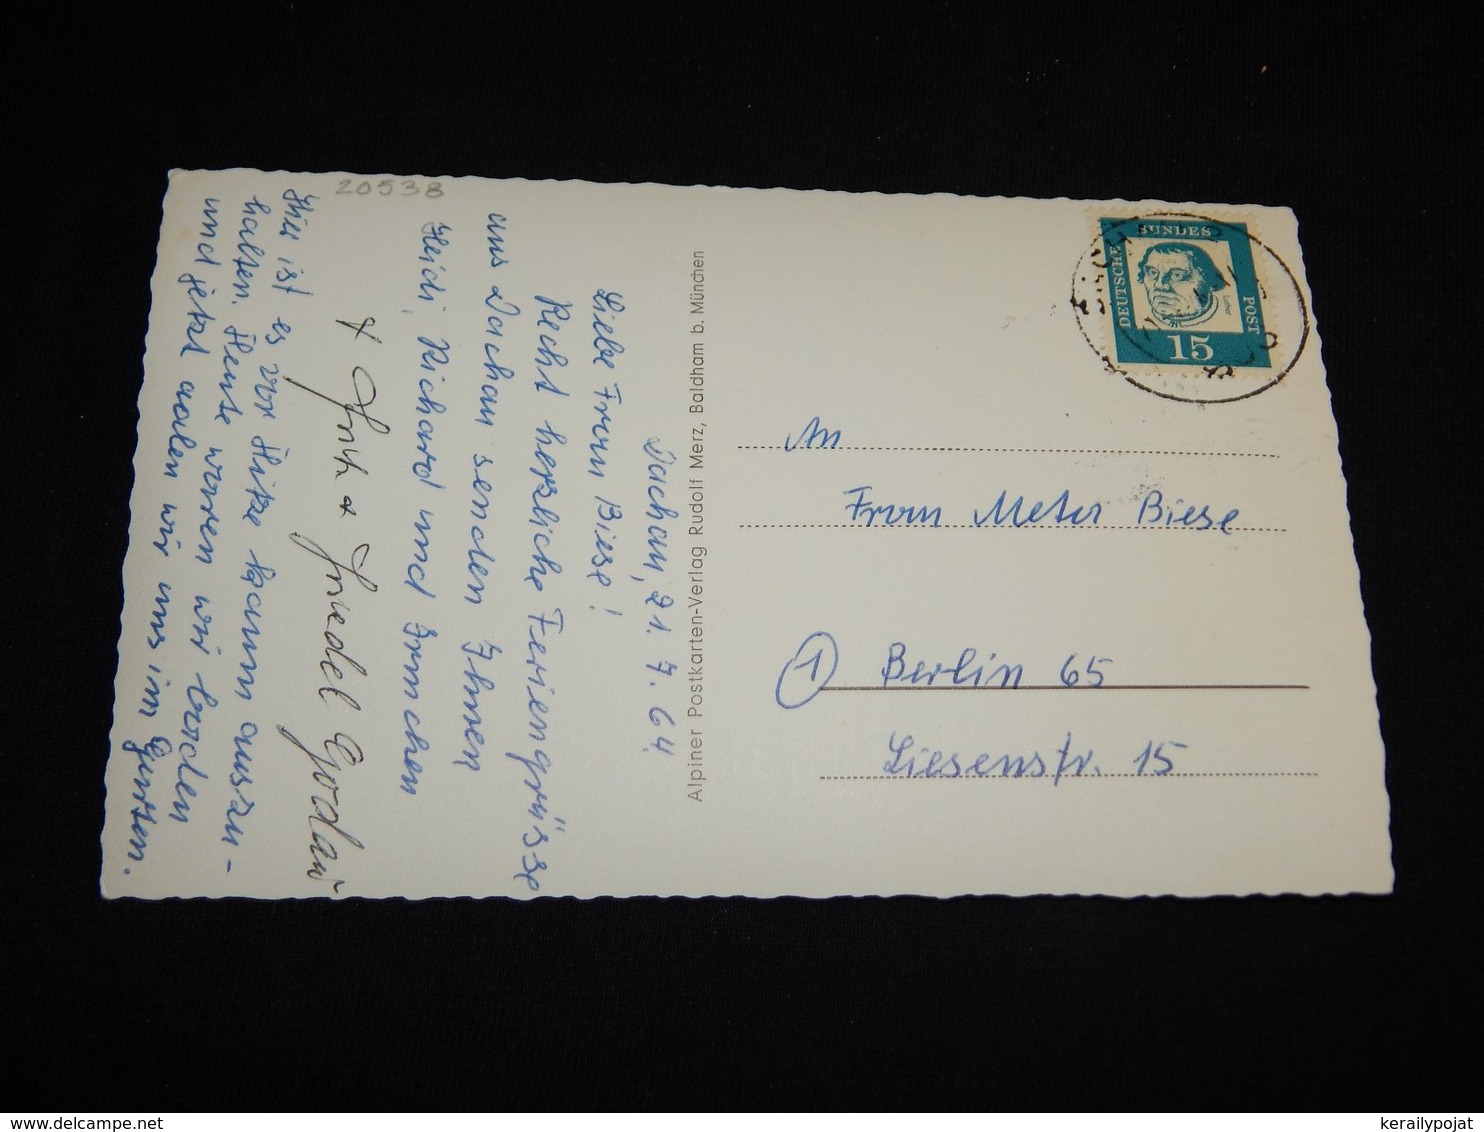 20538
Dachau, 21. 7. 64
Liebe Frau Biese!
Recht herzliche Feriengrüsse
aus Dachau senden Ihnen
Heidi, Richard und Irmchen
+ Friedel
Hier ist es vor Hitze kaum auszu-
halten. Heute waren wir baden
und jetzt aalen wir uns im Garten.
Alpiner Postkarten-Verlag Rudolf Merz, Baldham b. München
DEUTSCHE BUNDES POST
Luther
15
An
Frau Meta Biese
1 Berlin 65
Liesenstr. 15
kerailypojat
delcampe.net